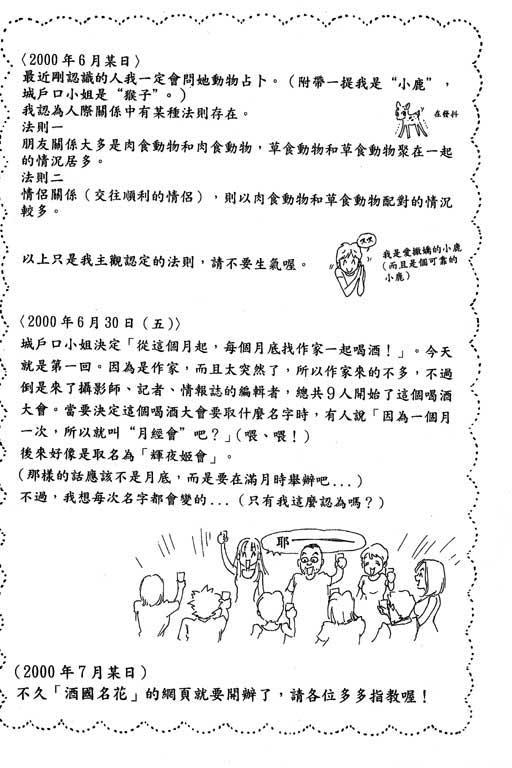 〈2000年6月某日〉
最近剛認識的人我一定會問她動物占卜。（附帶一提我是“小鹿”，
城戶口小姐是“猴子”。）
我認為人際關係中有某種法則存在。
在發抖
法則一
朋友關係大多是肉食動物和肉食動物，草食動物和草食動物聚在一起
的情況居多。
法則二
情侶關係（交往順利的情侶），則以肉食動物和草食動物配對的情況
較多。
以上只是我主觀認定的法則，請不要生氣喔。
我是愛撒嬌的小鹿
（而且是個可靠的
小鹿）
〈2000年6月30日（五）〉
城戶口小姐決定「從這個月起，每個月底找作家一起喝酒！」。今天
就是第一回。因為是作家，而且太突然了，所以作家來的不多，不過
倒是來了攝影師、記者、情報誌的編輯者，總共9人開始了這個喝酒
大會。當要決定這個喝酒大會要取什麼名字時，有人說「因為一個月
一次，所以就叫“月經會”吧？」（喂、喂！）
後來好像是取名為「輝夜姬會」。
（那樣的話應該不是月底，而是要在滿月時舉辦吧...）
不過，我想每次名字都會變的...（只有我這麼認為嗎？）
耶——
（2000年7月某日）
不久「酒國名花」的網頁就要開辦了，請各位多多指教喔！